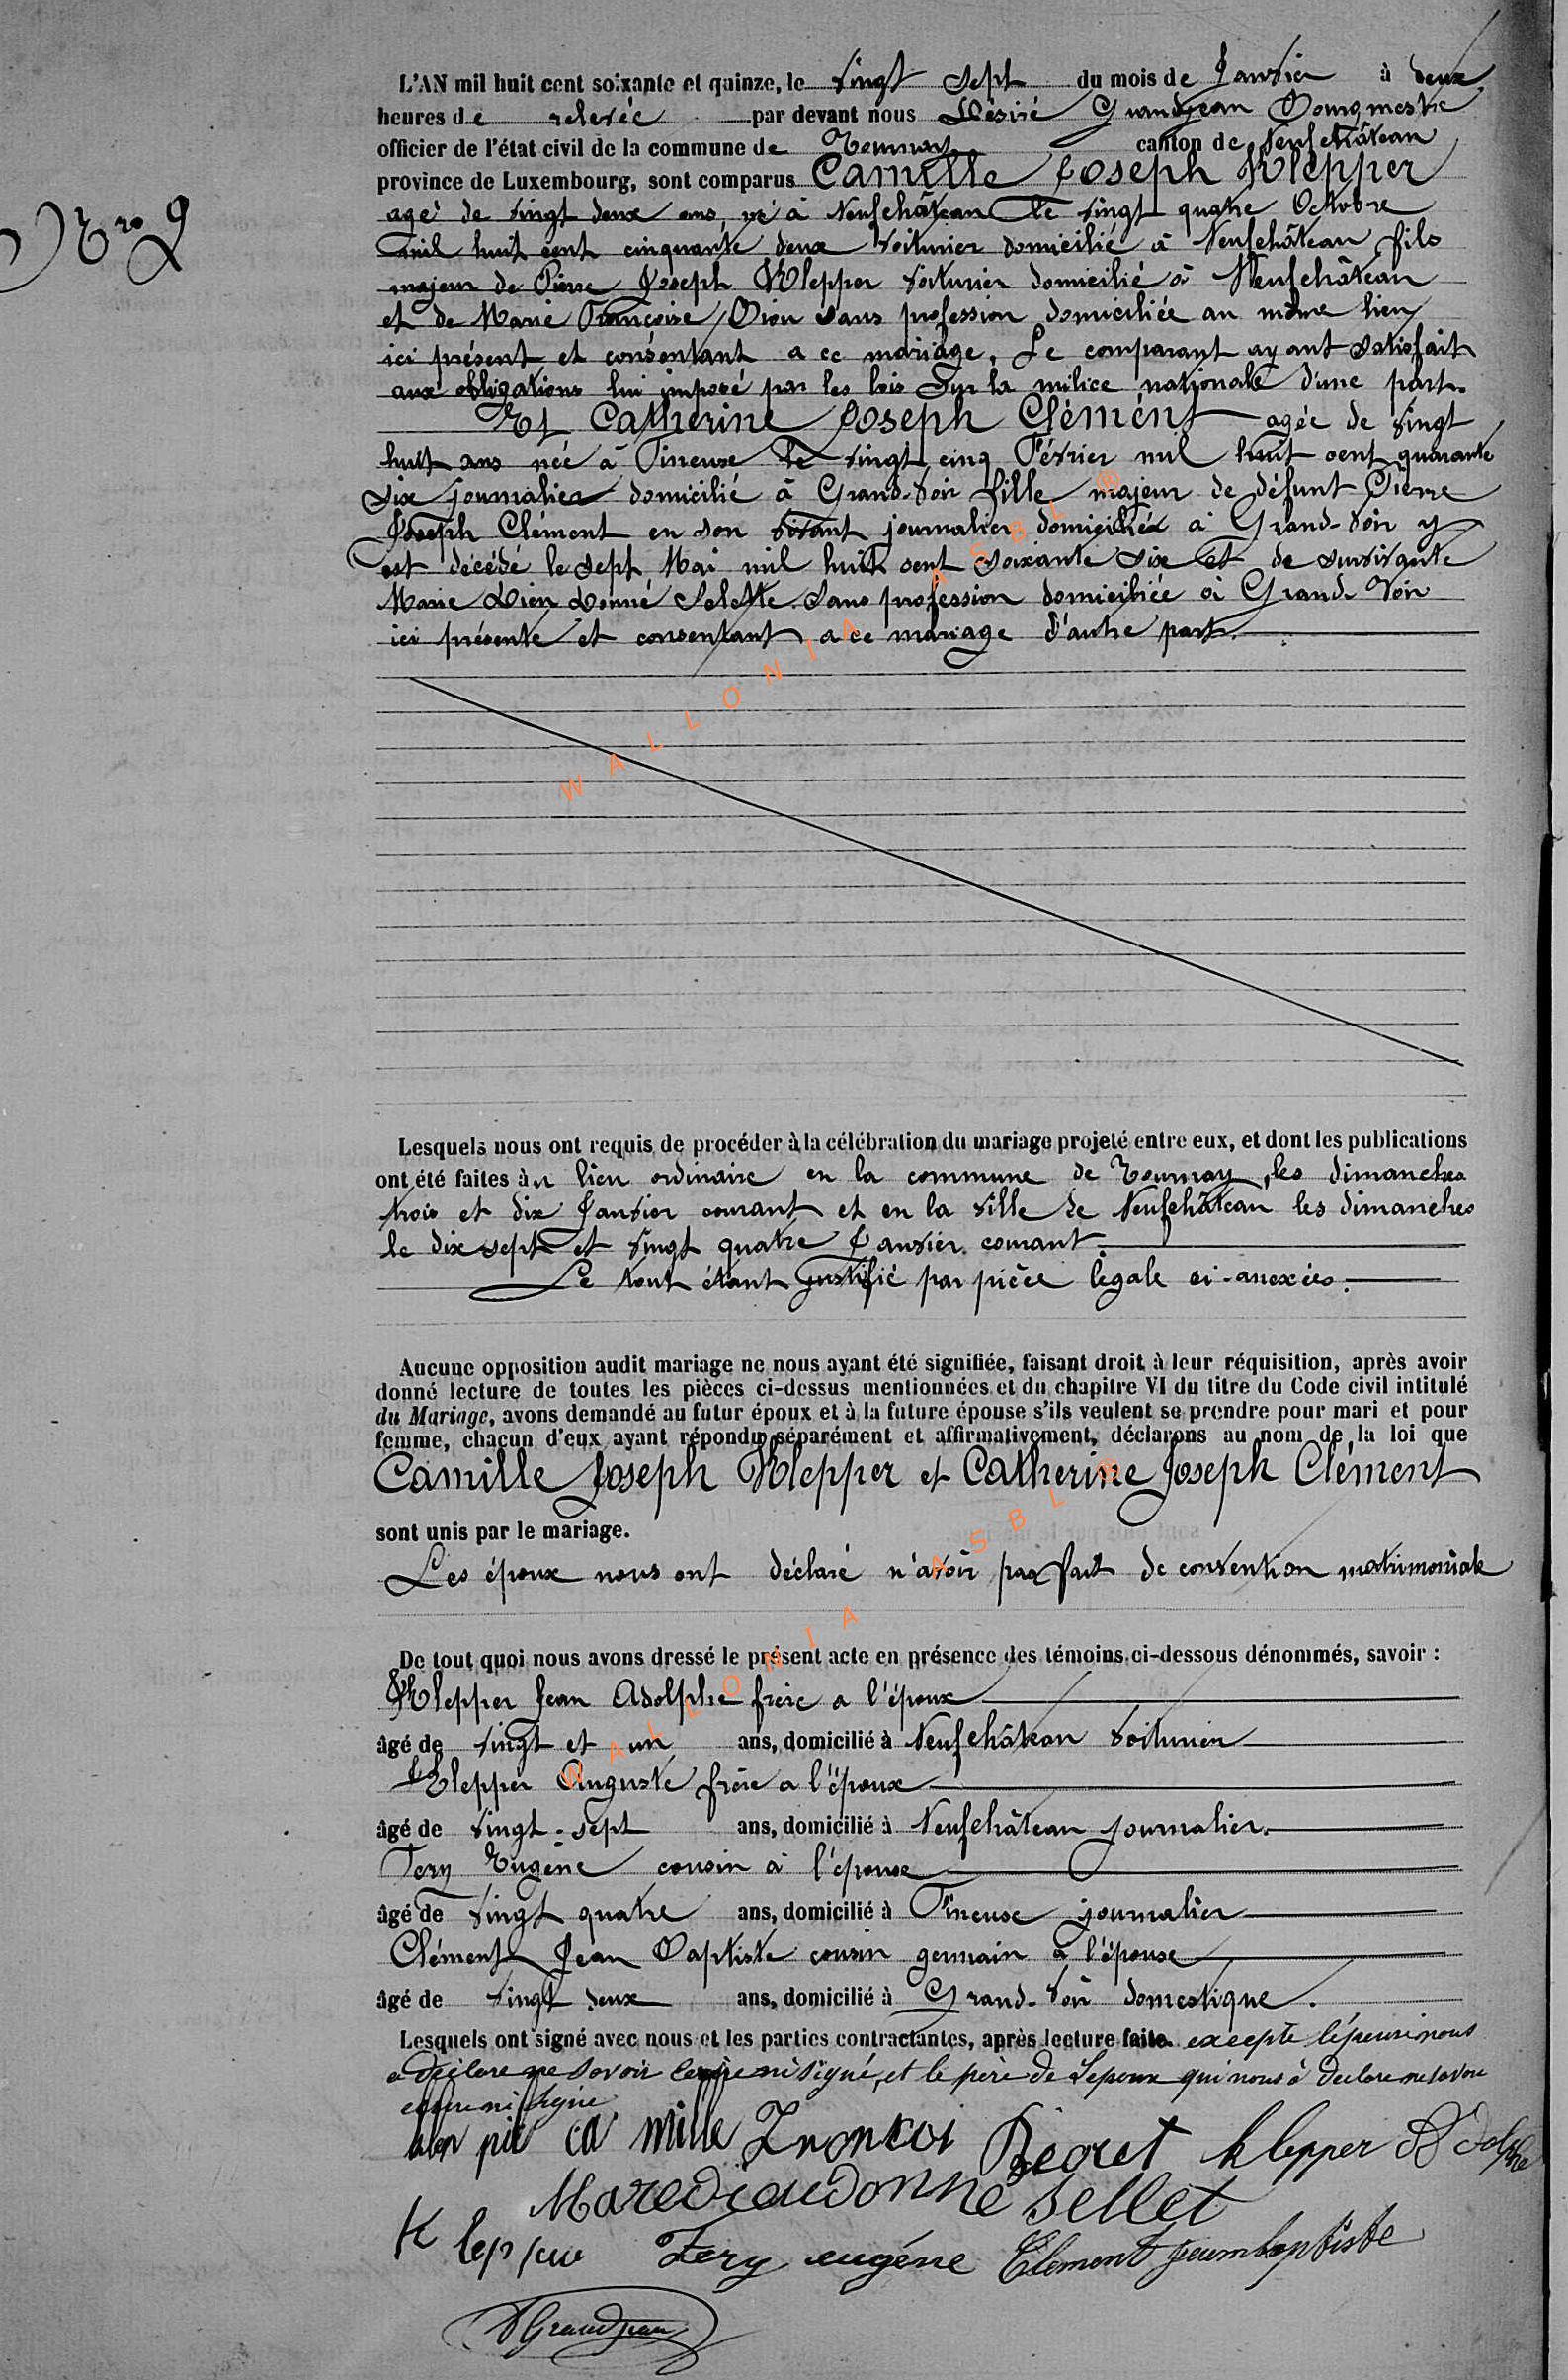 Nro 9
L'AN mil huit cent soixante et quinze, le vingt sept du mois de Janvier à deux
heures de relevée par devant nous Désiré Grandjean Bourgmestre
officier de l'état civil de la commune de Tournay canton de Neufchâteau
province de Luxembourg, sont comparus Camille Joseph Klepper
agé de vingt deux ans, né à Neufchâteau le vingt quatre Octobre
mil huit cent cinquante deux voiturier domicilié à Neufchâteau fils
majeur de Pierre Joseph Klepper voiturier domicilié à Neufchâteau
et de Marie Françoise Dion sans profession domiciliée au même lieu
ici présent et consentant a ce mariage. Le comparant ayant satisfait
aux obligations lui imposé par les lois sur la milice nationale d'une part.
Et Catherine Joseph Clément agée de vingt
huit ans née à Tineuse le vingt cinq Février mil huit cent quarante
six journalier domicilié à Grand-Voir fille majeur de défunt Pierre
Joseph Clément en son vivant journalier domiciliée à Grand-Voir y
est décédé le sept Mai mil huit cent soixante six et de survivante
Marie Dieu Donné Selette sans profession domiciliée à Grand-Voir
ici présente et consentant a ce mariage d'autre part.
WALLONIA ASBL ®
Lesquels nous ont requis de procéder à la célébration du mariage projeté entre eux, et dont les publications
ont été faites au lieu ordinaire en la commune de Tournay, les dimanches
trois et dix Janvier courant et en la ville de Neufchâteau les dimanches
le dix sept et vingt quatre Janvier courant.
Le tout étant justifié par pièce légale ci-anexées.
Aucune opposition audit mariage ne nous ayant été signifiée, faisant droit à leur réquisition, après avoir
donné lecture de toutes les pièces ci-dessus mentionnées et du chapitre VI du titre du Code civil intitulé
du Mariage, avons demandé au futur époux et à la future épouse s'ils veulent se prendre pour mari et pour
femme, chacun d'eux ayant répondu séparément et affirmativement, déclarons au nom de la loi que
Camille Joseph Klepper et Catherine Joseph Clément
sont unis par le mariage.
Les époux nous ont déclaré n'avoir pas fait de convention matrimoniale
De tout quoi nous avons dressé le présent acte en présence des témoins ci-dessous dénommés, savoir :
Klepper Jean Adolphe frère a l'époux
âgé de vingt et un ans, domicilié à Neufchâteau voiturier
Klepper Auguste frère a l'époux
âgé de vingt-sept ans, domicilié à Neufchâteau journalier.
Fery Eugène cousin à l'épouse
âgé de vingt quatre ans, domicilié à Tineuse journalier
Clément Jean Baptiste cousin germain à l'épouse
âgé de vingt deux ans, domicilié à Grand-Voir domestique.
WALLONIA ASBL ®
Lesquels ont signé avec nous et les parties contractantes, après lecture faite. excepte
a déclare ne savoir ni signé, et le père de Lepoux qui nous à declare ne savoir
ni signé
ca mille klepper Adolphe
dieudonné sellet
Klepper Fery eugéne Clement jean baptiste
DGrandjean